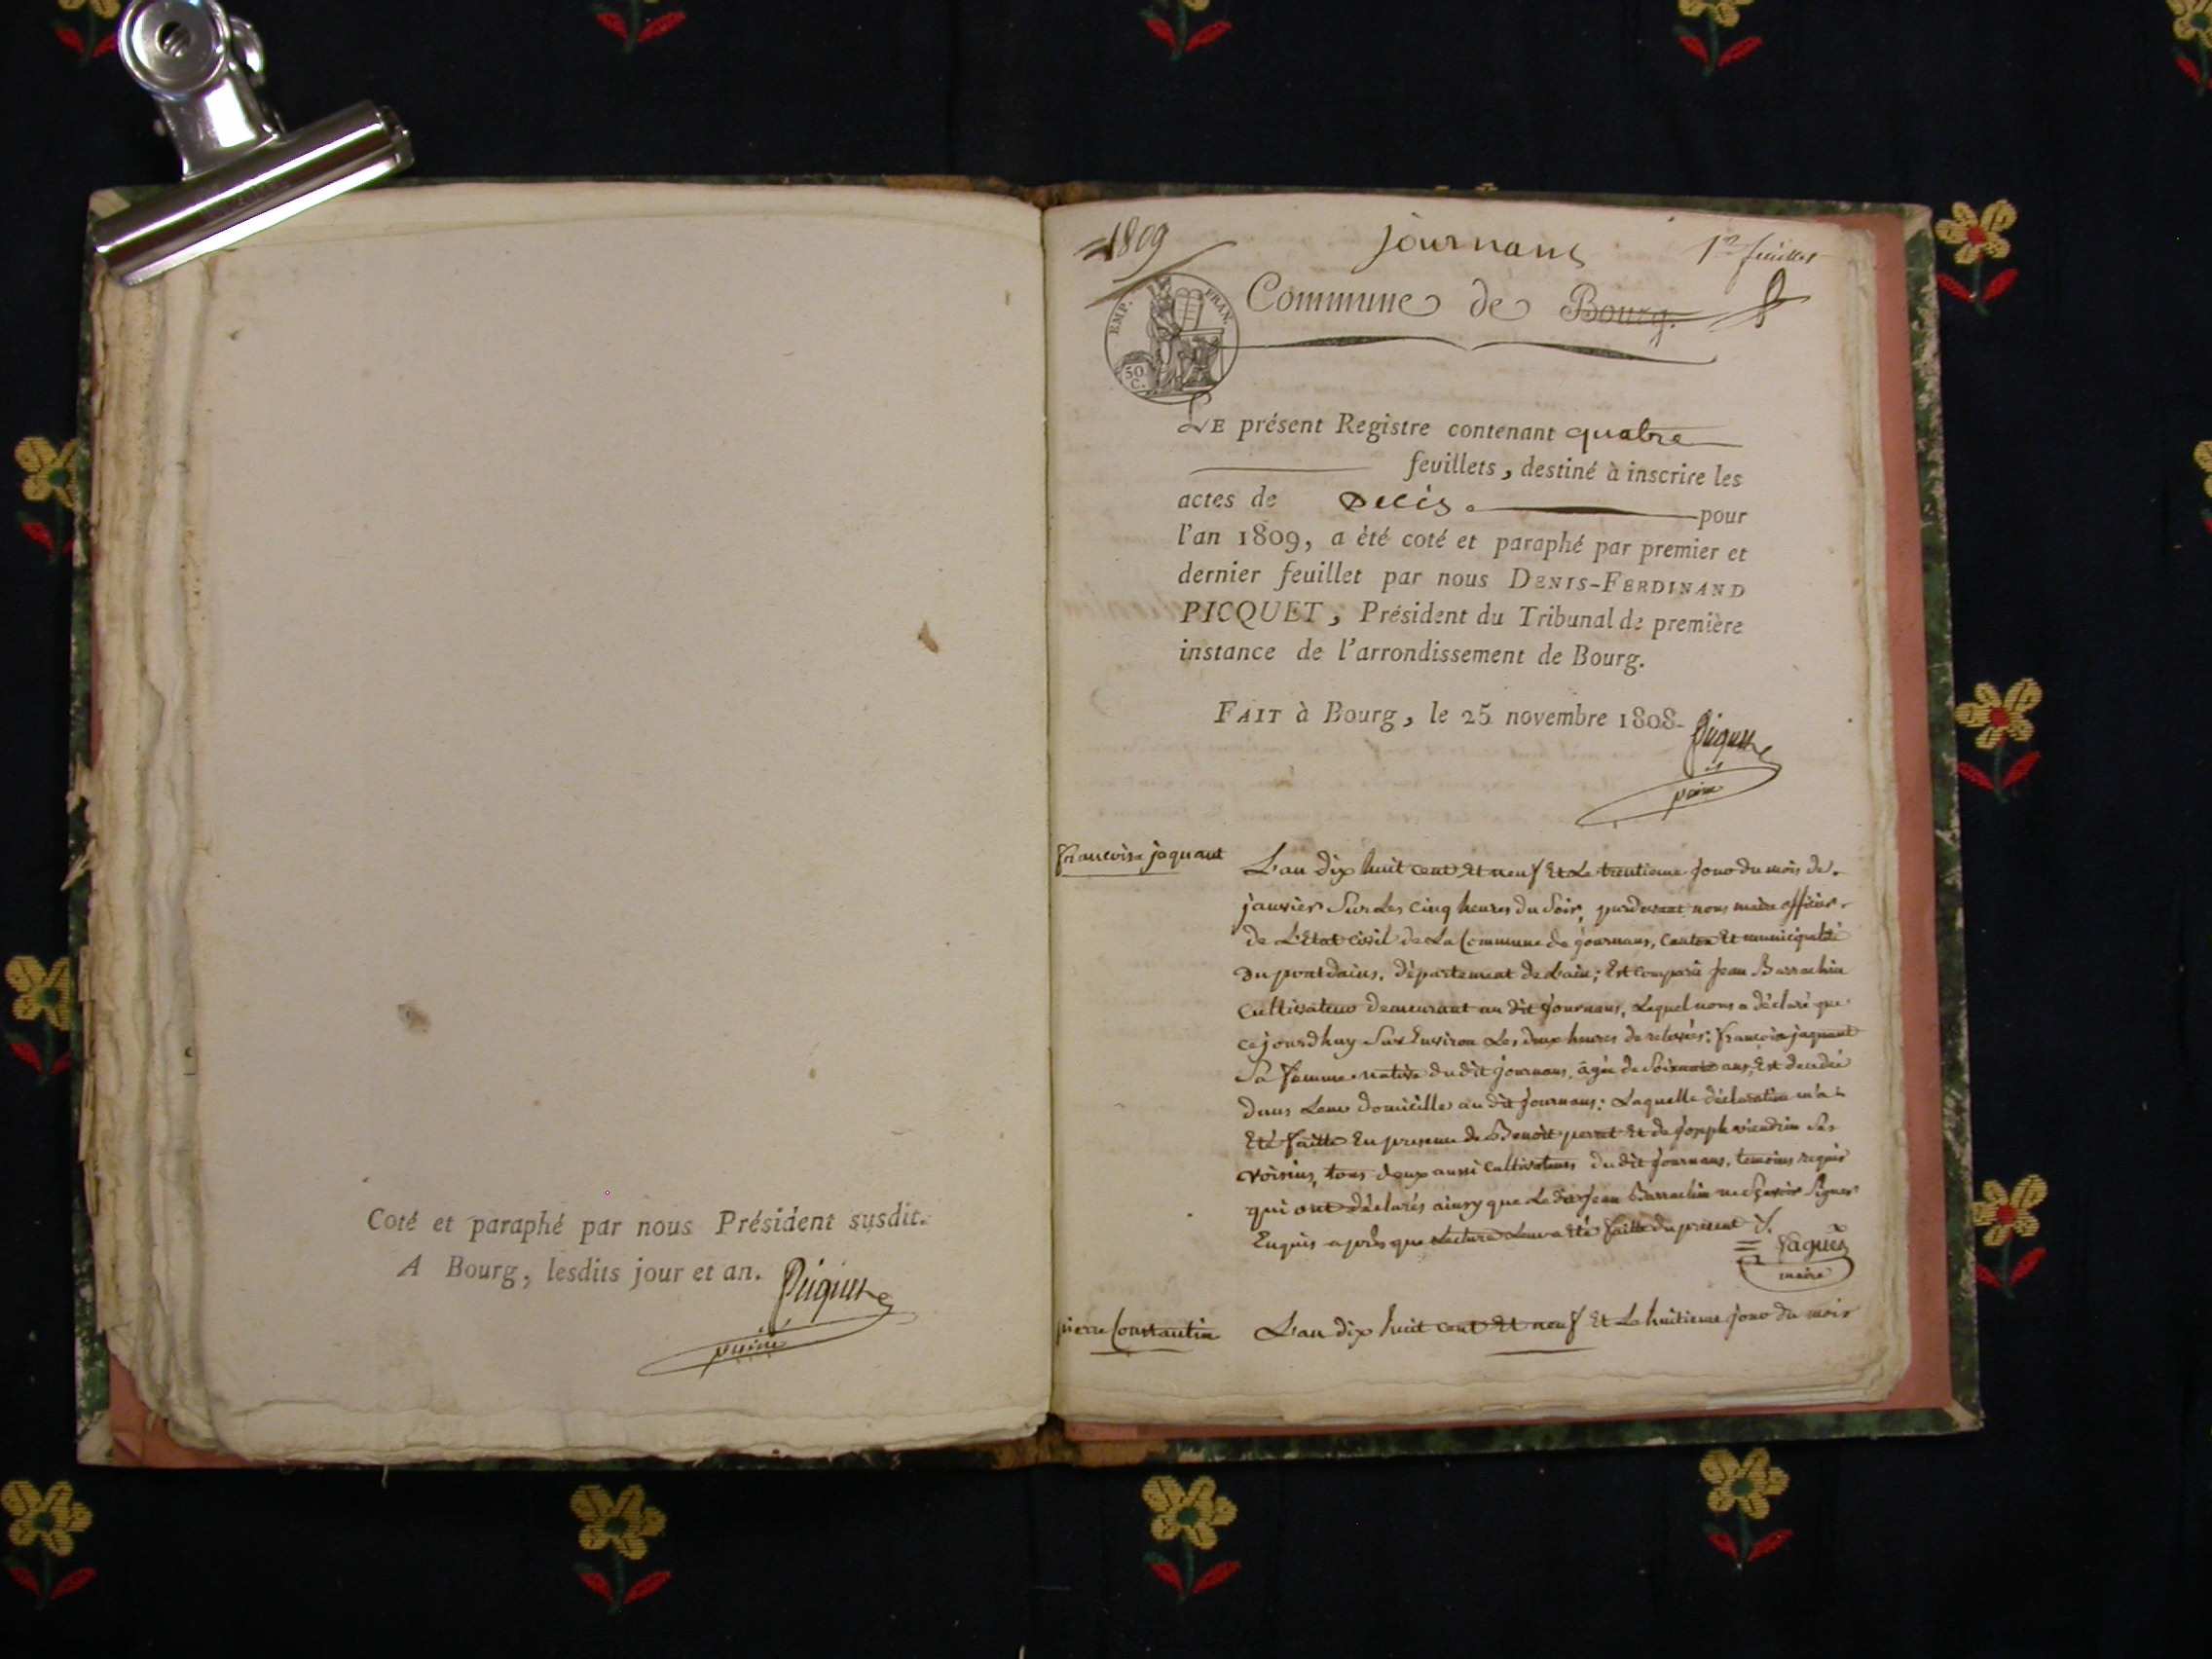 Coté et paraphé par nous Président susdit.
A Bourg, lesdits jour et an. Picquet
1809
journans
1er feuillet
EMP. FRAN.
50 C.
Commune de Bourg.
LE présent Registre contenant quatre
feuillets, destiné à inscrire les
actes de Décès. pour
l'an 1809, a été coté et paraphé par premier et
dernier feuillet par nous DENIS-FERDINAND
PICQUET, Président du Tribunal de première
instance de l'arrondissement de Bourg.
FAIT à Bourg, le 25 novembre 1808. Picquet
francoise jaquant
L'an dix huit cent et neuf Et Le trentieme jour du mois de
janvier Sur Les cinq heures du Soir, pardevant nous maire officier
de L'Etat civil de La Commune de journans, Canton Et municipalité
du pontdains, département de Lain; Est comparu jean Barrachin
Cultivateur demeurant au dit journans, Lequel nous a déclaré que
cejourdhuy Sur Environ Les deux heures de relevées; francoise jaquant
Sa femme native du dit journans, agée de Soixante ans, Est decedée
dans Leur domicille au dit journans: Laquelle déclaration m'a
Eté faitte En presence de Benoit perret Et de joseph viendrin Ses
voisins, tous deux aussi Cultivateurs du dit journans, temoins requis
qui ont déclarés ainsy que Le dit jean Barrachin ne Sçavoir Signer
Enquis après que Lecture Leur a Eté faitte du present
fagues
maire
pierre Constantin
L'an dix huit cent Et neuf Et Le huitieme jour du mois